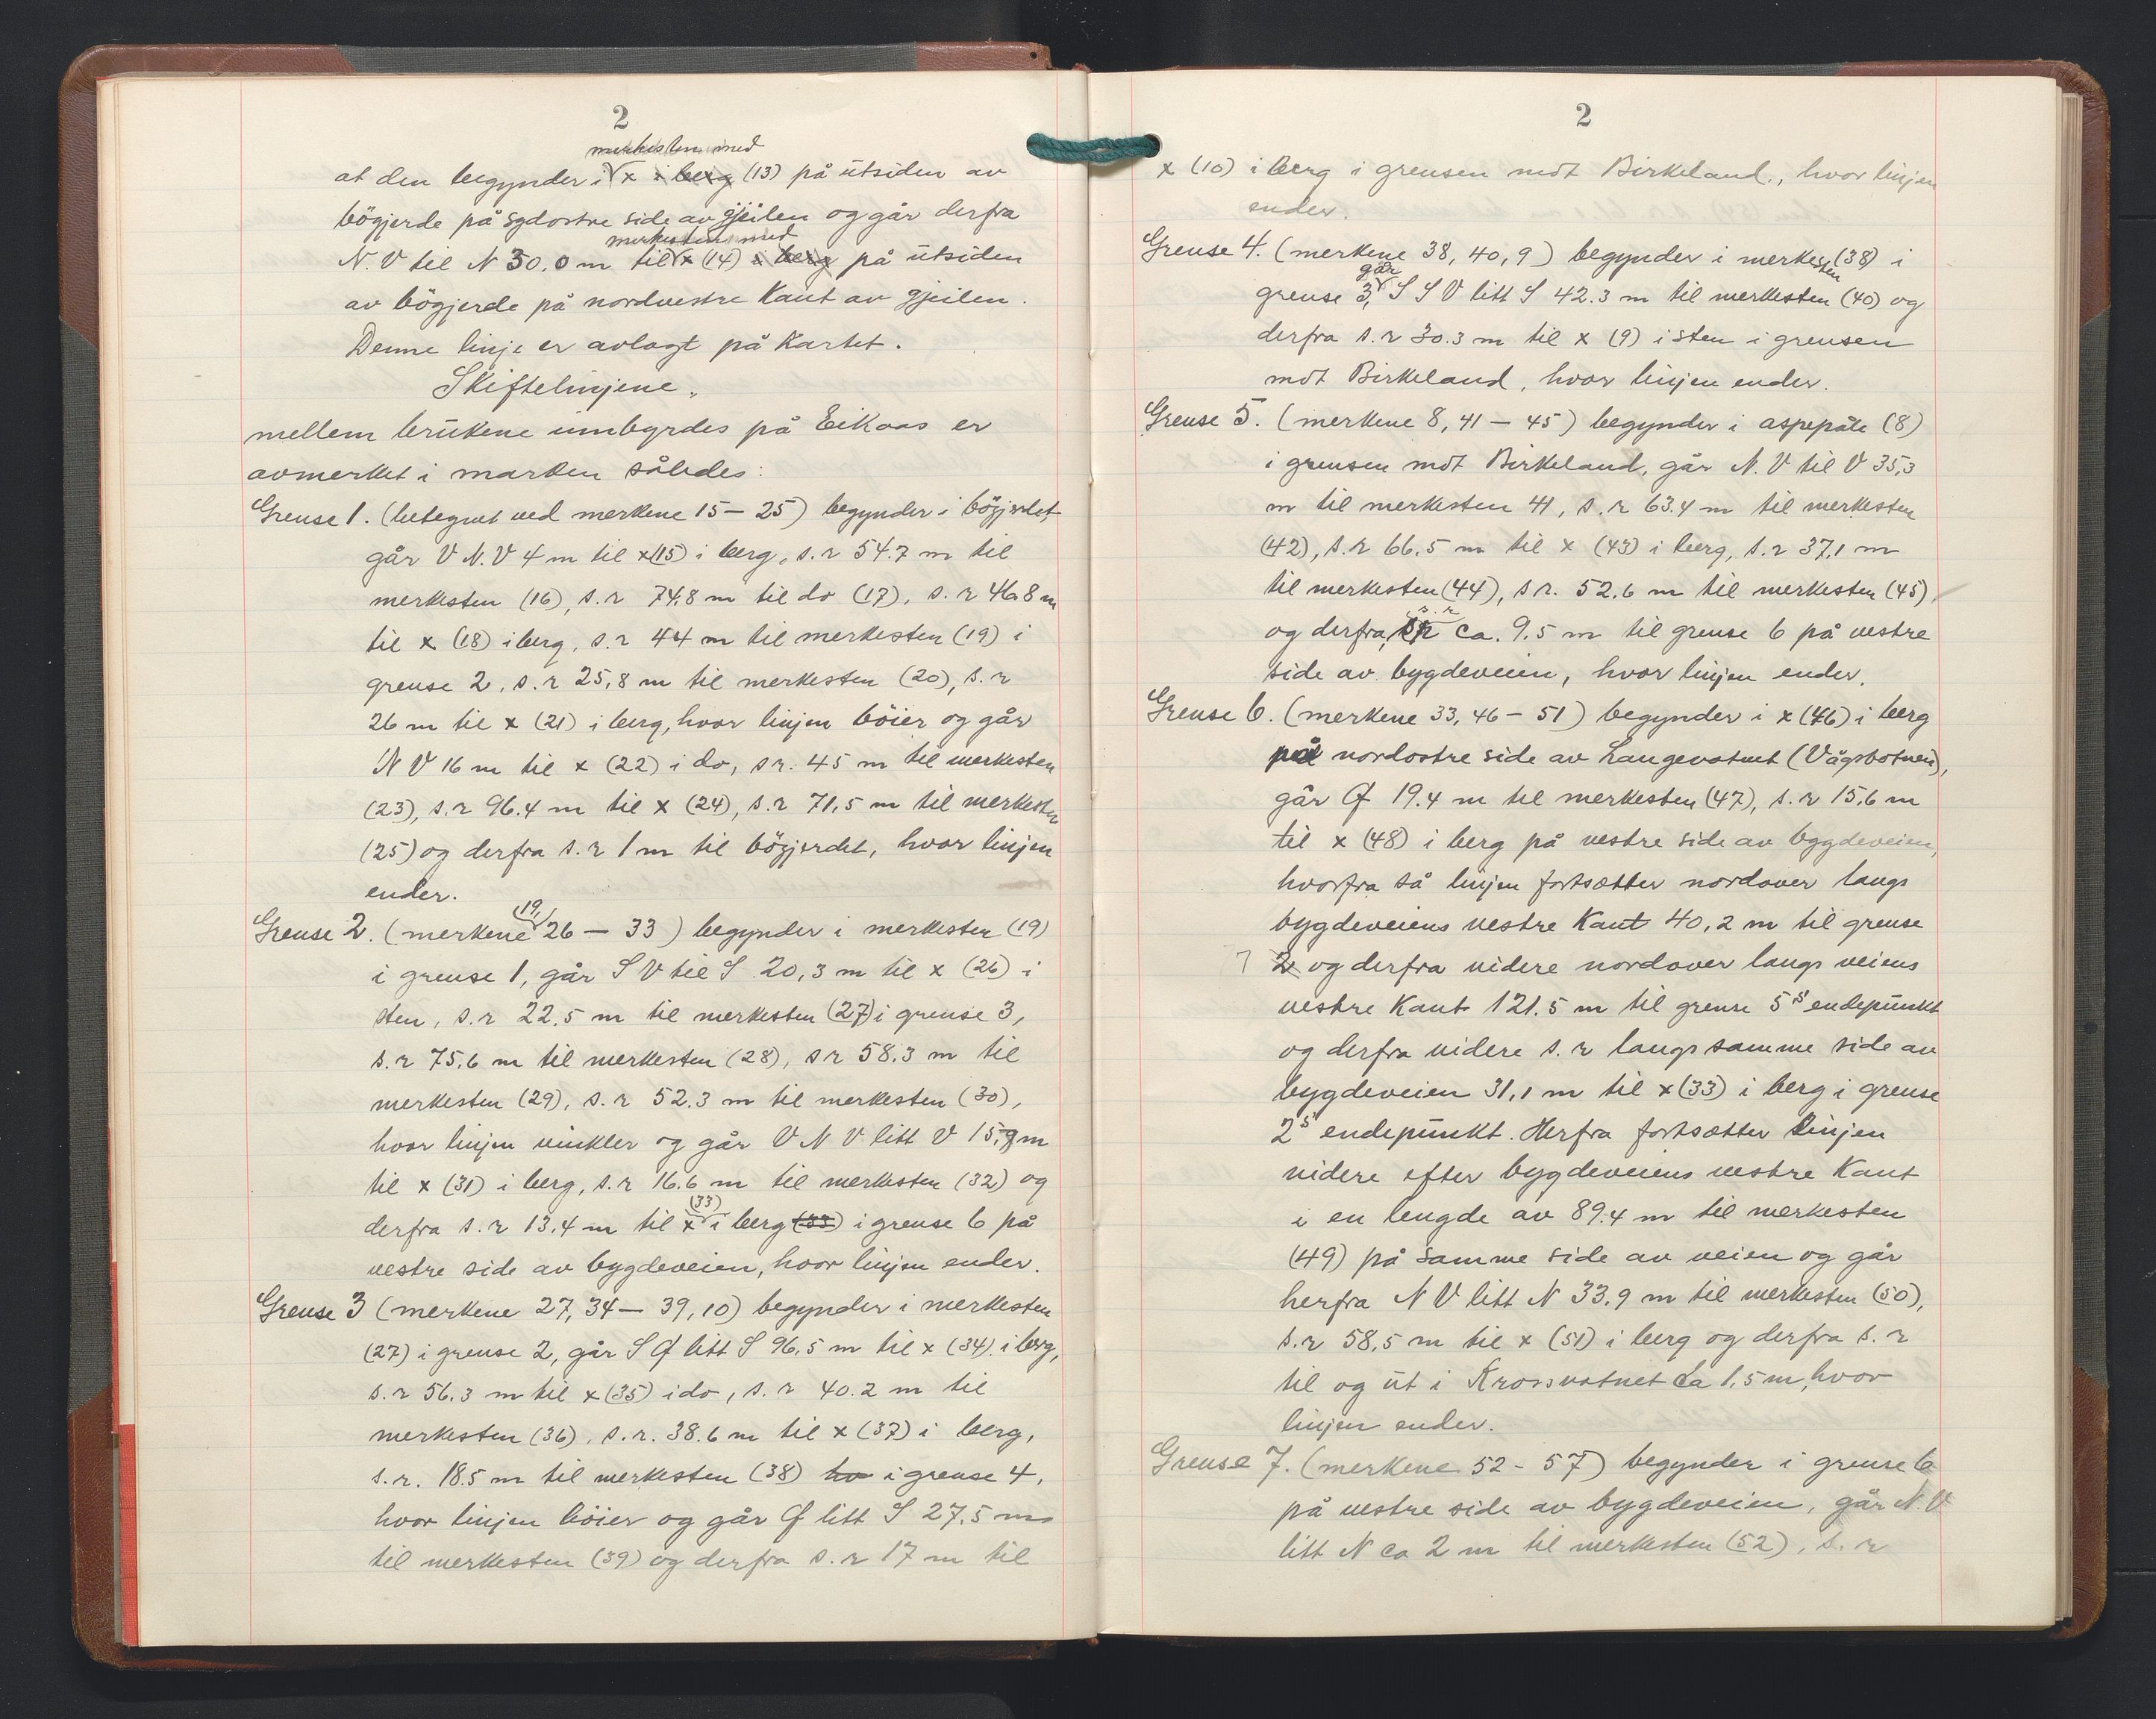 2
merkesten med
at den begynder i x i berg (13) på utsiden av
bögjerde på sydostre side av gjeilen og går derfra
merkesten med
N.V til N 30,0 m til x (14) i berg på utsiden
av bögjerde på nordvestre Kant av gjeilen.
Denne linje er avlagt på Kartet.
Skiftelinjene.
mellem brukene innbyrdes på Eikaas er
avmerket i marken således:
Grense 1. (betegnet ved merkene 15 – 25) begynder i bögjerdet
går V N.V 4 m til x (15) i berg, s.r 54.7 m til
merkesten (16), s.r 74,8 m til do (17), s.r 46,8 m
til x (18) i berg, s.r 44 m til merkesten (19) i
grense 2, s.r 25,8 m til merkesten (20), s.r
26 m til x (21) i berg, hvor linjen böier og går
N V 16 m til x (22) i do, s r. 45 m til merkesten
(23), s.r 96.4 m til x (24), s.r 71,5 m til merkesten
(25) og derfra s.r 1 m til bögjerdet, hvor linjen
ender.
(19,
Grense 2. (merkene 26 – 33) begynder i merkesten (19)
i grense 1, går S V til S 20,3 m til x (26) i
sten, s.r 22.5 m til merkesten (27) i grense 3,
s.r 75,6 m til merkesten (28), s r 58.3 m til
merkesten (29), s.r 52.3 m til merkesten (30),
hvor linjen vinkler og går V N V litt V 15,9 m
til x (31) i berg, s.r 16.6 m til merkesten (32) og
(33)
derfra s.r 13.4 m til x i berg (33) i grense 6 på
vestre side av bygdeveien, hvor linjen ender.
Grense 3 (merkene 27, 34 – 39, 10) begynder i merkesten
(27) i grense 2, går S Ø litt S 96,5 m til x (34) i berg,
s.r 56.3 m til x (35) i do, s.r 40.2 m til
merkesten (36), s.r. 38.6 m til x (37) i berg,
s.r. 18.5 m til merkesten (38) hvo i grense 4,
hvor linjen böier og går Ø litt S 27,5 m
til merkesten (39) og derfra s.r 17 m til
2
x (10) i berg i grensen mot Birkeland., hvor linjen
ender.
Grense 4. (merkene 38, 40, 9) begynder i merkesten (38) i
går
grense 3, S S V litt S 42.3 m til merkesten (40) og
derfra s.r 30.3 m til x (9) i sten i grensen
mot Birkeland, hvor linjen ender.
Grense 5. (merkene 8, 41 – 45) begynder i aspepåle (8)
i grensen mot Birkeland, går N.V til V 35,3
m til merkesten 41, s.r 63.4 m til merkesten
(42), s.r 66.5 m til x (43) i berg, s.r 37,1 m
til merkesten (44), s r. 52.6 m til merkesten (45)
s.r
og derfra, ca. 9.5 m til grense 6 på vestre
side av bygdeveien, hvor linjen ender.
Grense 6. (merkene 33, 46 – 51) begynder i x (46) i berg
på nordostre side av Langevatnet (Vågsbotnen),
går Ø 19.4 m til merkesten (47), s.r 15.6 m
til x (48) i berg på vestre side av bygdeveien,
hvorfra så linjen fortsætter nordover langs
bygdeveiens vestre Kant 40,2 m til grense
7 2 og derfra videre nordover langs veiens
vestre Kant 121.5 m til grense 5's endepunkt
og derfra videre s.r langs samme side av
bygdeveien 31,1 m til x (33) i berg i grense
2's endepunkt. Herfra fortsætter linjen
videre efter bygdeveiens vestre Kant
i en lengde av 89.4 m til merkesten
(49) på samme side av veien og går
herfra N V litt N 33.9 m til merkesten (50),
s.r 58,5 m til x (51) i berg og derfra s.r
til og ut i Krossvatnet ca 1,5 m, hvor
linjen ender.
Grense 7. (merkene 52 - 57) begynder i grense 6
på vestre side av bygdeveien, går N.V
litt N ca 2 m til merkesten (52), s.r